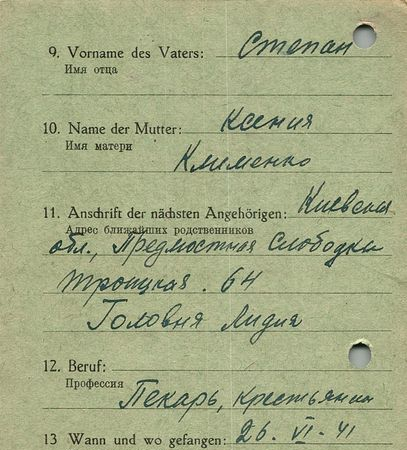 9. Vorname des Vaters: Степан
Имя отца
10. Name der Mutter: Ксения
Имя матери
Клименко
11. Anschrift der nächsten Angehörigen: Киевская
Адрес ближайших родственников
обл., Предмостная Слободка
Троицкая. 64
Головня Лидия
12. Beruf:
Профессия
Пекарь, крестьянин
13 Wann und wo gefangen: 26. VI. 41